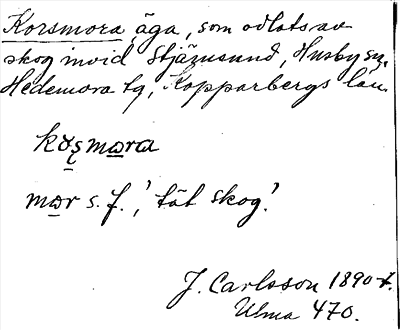 Korsmora äga, som odlats av
skog invid Stjärnsund, Husby sn,
Hedemora tg, Kopparbergs län.
mær s. f., 'tät skog'.
J. Carlsson 1890-t.
Ulma 470.